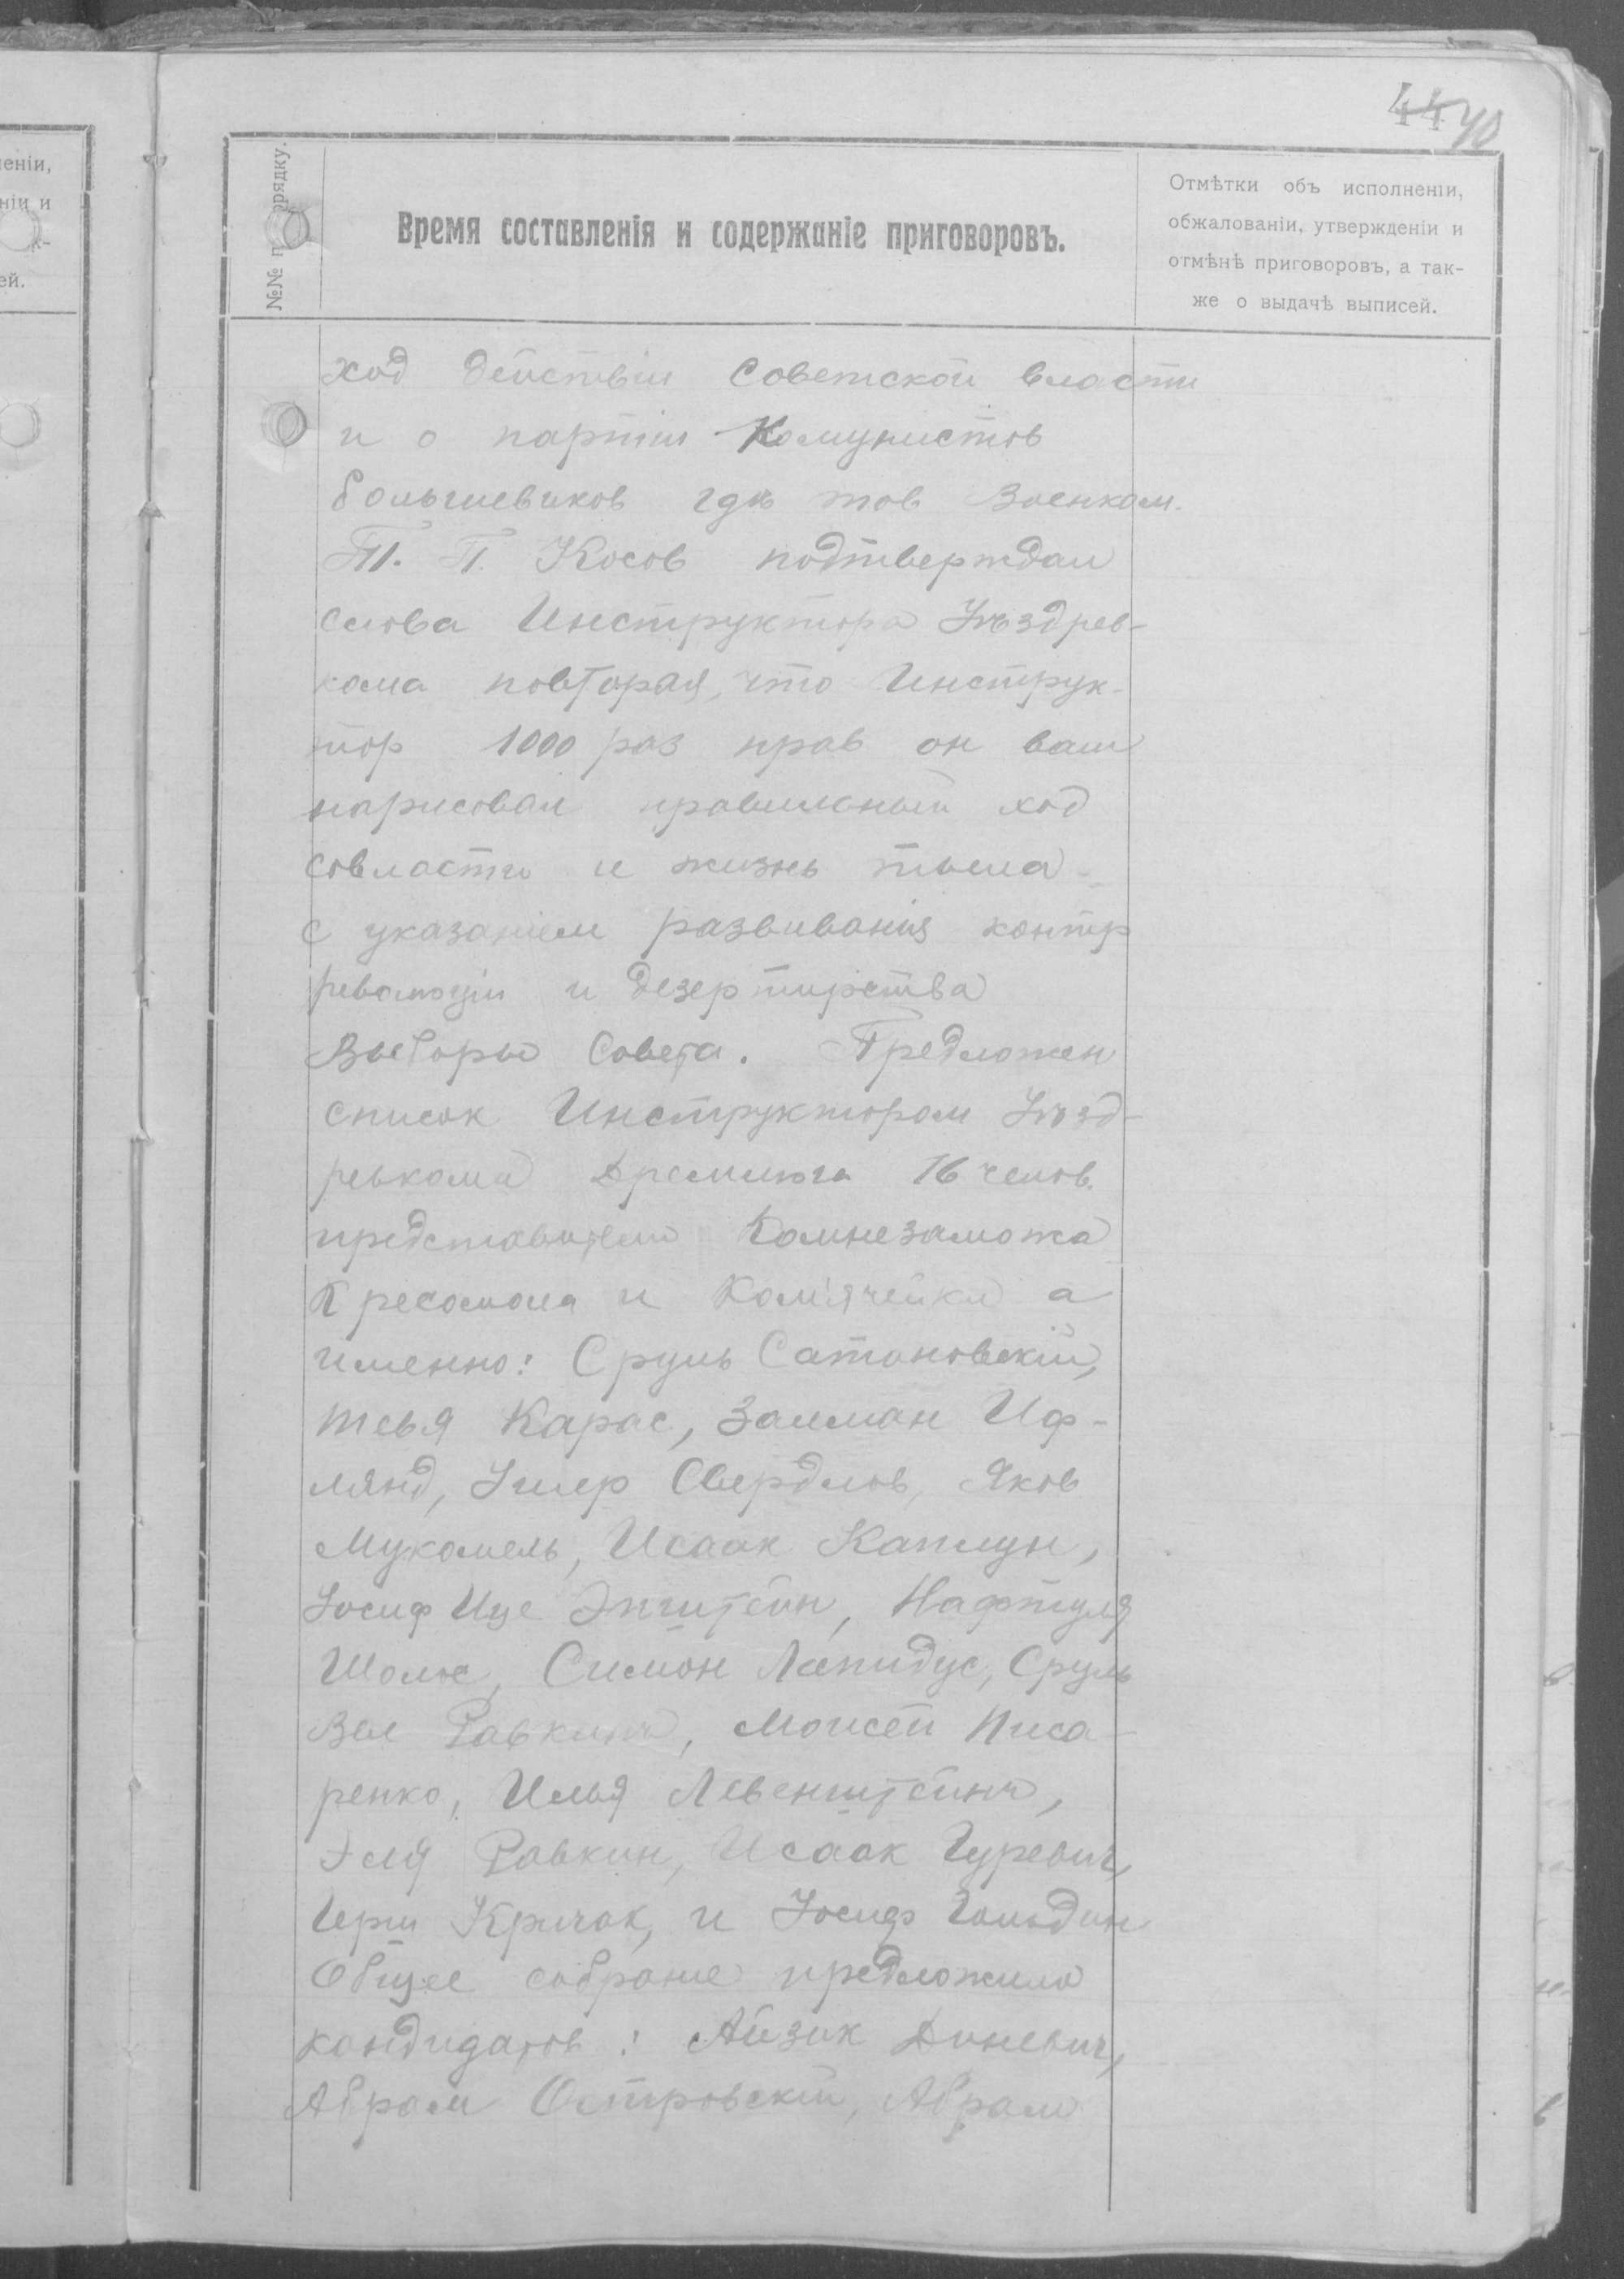 44 40
№№ п рядку.
Время составленія и содержаніе приговоровъ.
Отмѣтки объ исполненіи,
обжалованіи, утвержденіи и
отмѣнѣ приговоровъ, а так-
же о выдачѣ выписей.
ход действіи Советской власти
и о партіи Комунистов
большевиков гдѣ тов Военком.
Т. П. Косов подтверждал
слова Инструктора Уѣздрев-
кома повторая, что Инструк-
тор 1000 раз прав он вам
нарисовал правильный ход
совласти и жизнь тыла
с указаніем развиванія контр
революціи и дезертирства
Выборы Совета. Предложен
список Инструктором Уѣзд-
ревкома Дремлюга 16 челов.
представители Комнезаможа
Кресомола и Ком'ячейки а
именно: Сруль Сатановскій,
Тевя Карас, Залман Иф-
лянд, Ушер Свердлов, Яков
Мукомель, Исаак Каплун,
Іосиф Ице Эпштейн, Нафтуля
Шолюс, Симон Лапидус, Сруль
Вол Равкинъ, Моисей Писа-
ренко, Илья Левенштейнъ,
Эля Равкин, Исаак Гуревич,
Герш Кричак, и Іосиф Гольдин
Общее собрание предложило
кандидатов: Айзик Диневич,
Абрам Островскій, Абрам
еніи,
ніи и
к-
ей.